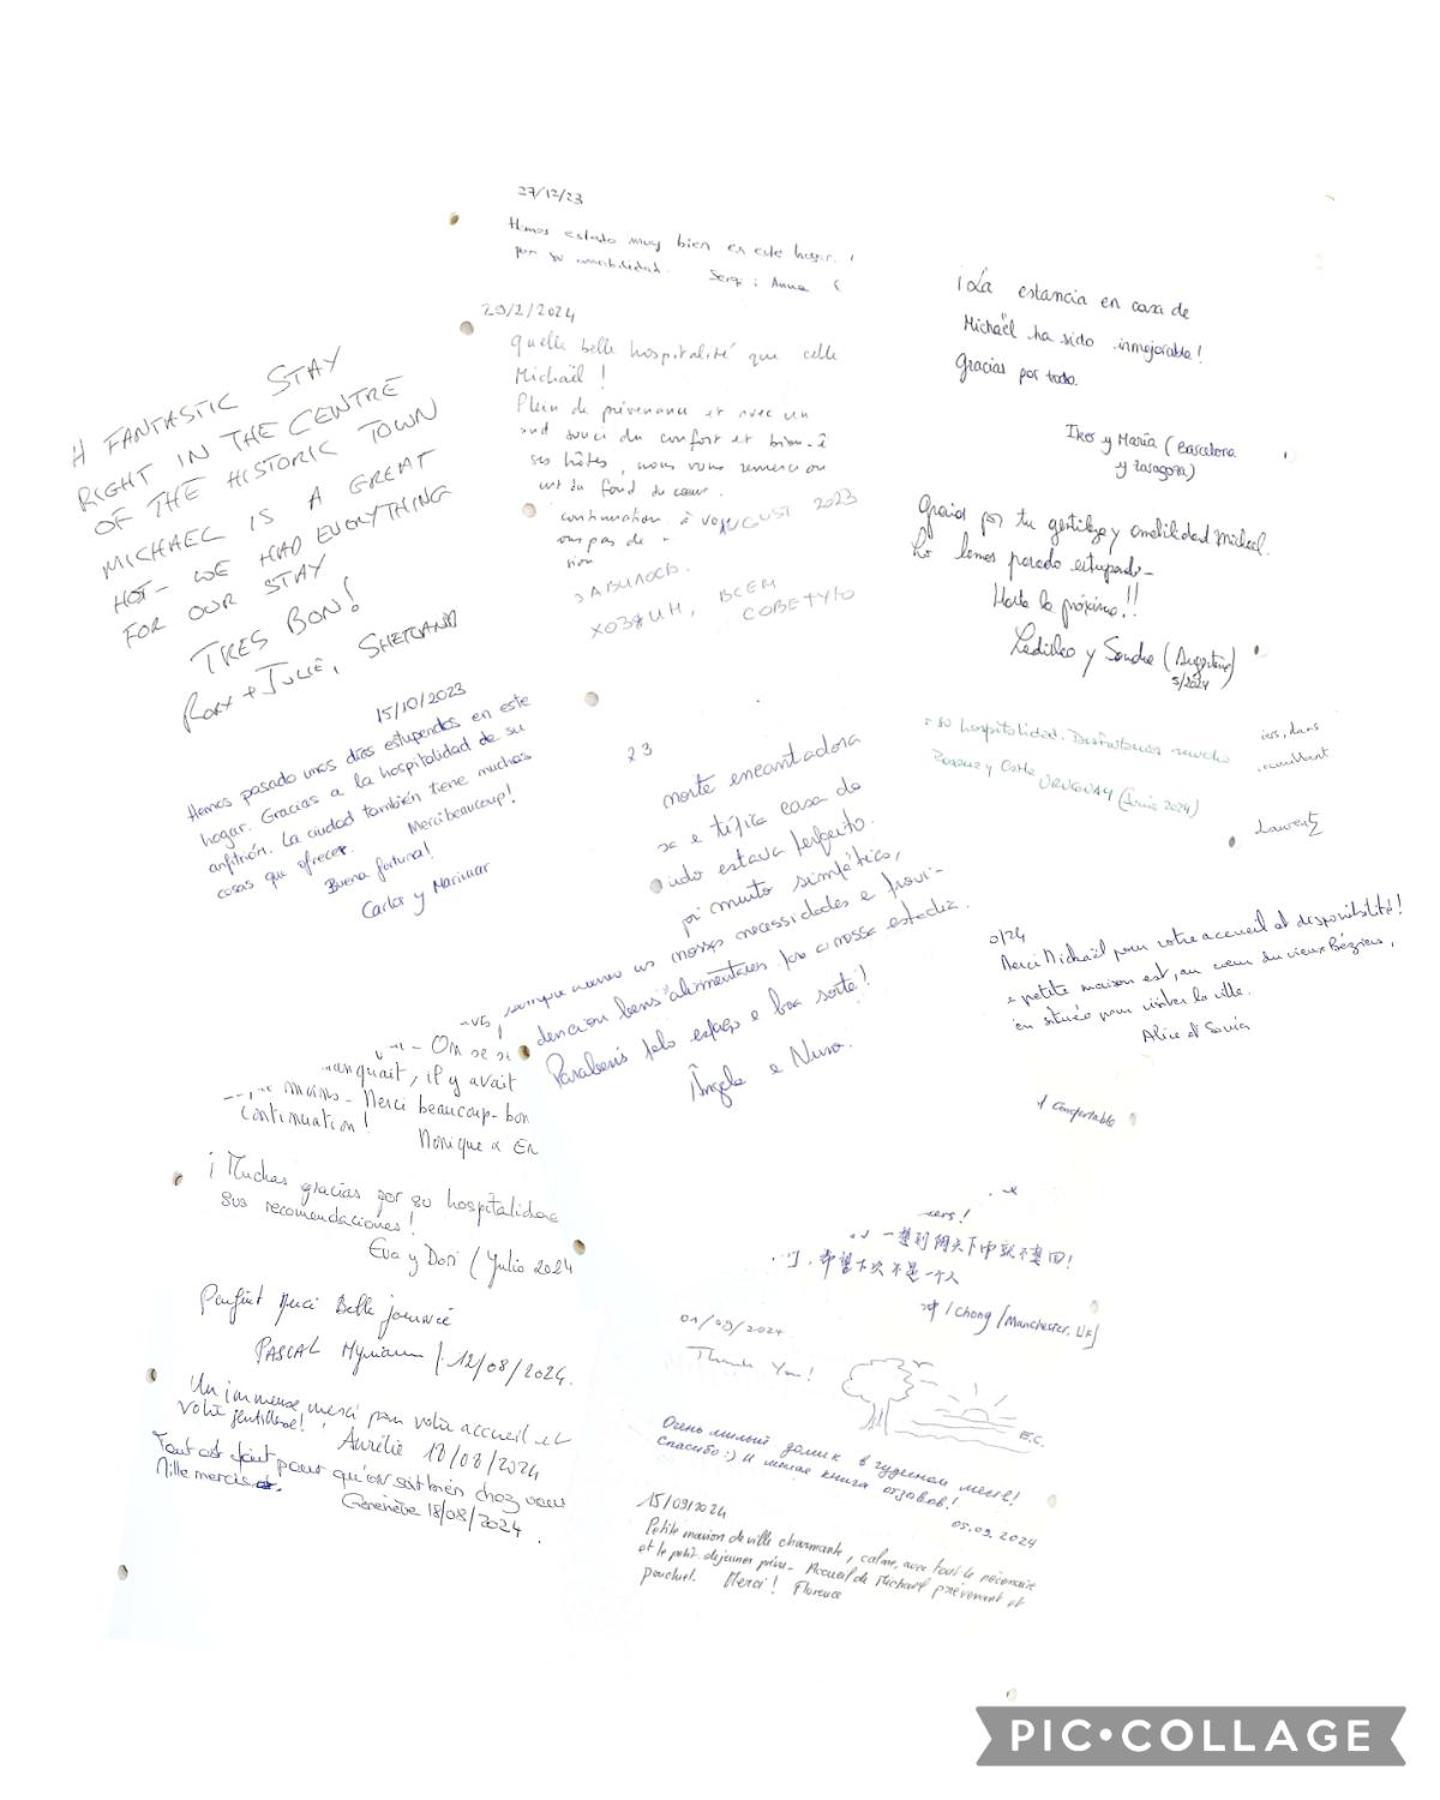 27/12/23
Hemos estado muy bien en este hogar.
por su amabilidad. Serg i Anna
29/2/2024
Quelle belle hospitalité que celle
Michaël !
Plein de prévenance et avec un
souci du confort et bien-ê
ses hôtes, nous vous remercions
du fond du cœur.
continuation à vo
ous pas de
sion
AUGUST 2023
ЗАВИЛОСЬ.
ХОЗЯИН, ВСЕМ
СОВЕТУЮ
¡La estancia en casa de
Michaël ha sido inmejorable!
Gracias por todo.
Iker y María (Barcelona
y Zaragoza)
Gracias por tu gentileza y amabilidad Michael.
Lo hemos pasado estupendo-
Hasta la próxima!!
y Sandra (Argentina)
5/2024
A FANTASTIC STAY
RIGHT IN THE CENTRE
OF THE HISTORIC TOWN
MICHAEL IS A GREAT
HOT- WE HAD EVERYTHING
FOR OUR STAY
TRES BON!
RORY + JULIE, SHETLAND
15/10/2023
Hemos pasado unos días estupendos en este
hogar. Gracias a la hospitalidad de su
anfitrión. La ciudad también tiene muchas
cosas que ofrecer. Merci beaucoup!
Buena fortuna!
Carlos y Marimar
su hospitalidad. Disfrutamos mucho
URUGUAY (Junio 2024)
iers, dans
cueillant
Laurent
23
noite encantadora
e típica casa do
udo estava perfeito.
oi muito simpático,
sempre as nossas necessidades e provi-
denciou bens alimentares para a nossa estadia.
Parabéns pelo espaço e boa sorte!
Ângela e Nuno.
0/24
Merci Michaël pour votre accueil et disponibilité!
petite maison est, au cœur du vieux Béziers,
en située pour visiter la ville.
Alice et Sonia
On se
manquait, il y avait
moins - Merci beaucoup - bon
continuation! Monique &
¡Muchas gracias por su hospitalidad
sus recomendaciones!
Eva y Dori (Julio 2024
Parfait Merci Belle journée
PASCAL Myriam /.12/08/2024.
Un immense merci pour votre accueil et
votre gentillesse! Aurélie 18/08/2024
Tout est fait pour qu'on soit bien chez vous
Mille mercis. Geneviève 18/08/2024.
t comfortable
iers!
一想到明天下中就不想回!
希望下次不是一个人
冲 / Chong / Manchester, UK
01/09/2024
Thank You!
E.C.
Очень милый домик в чудесном месте!
Спасибо :) И милая книга отзывов!
05.09.2024
15/09/2024
Petite maison de ville charmante, calme, avec tout le nécessaire
et le petit déjeuner prévu - Accueil de Michaël prévenant et
ponctuel. Merci! Florence
PIC•COLLAGE